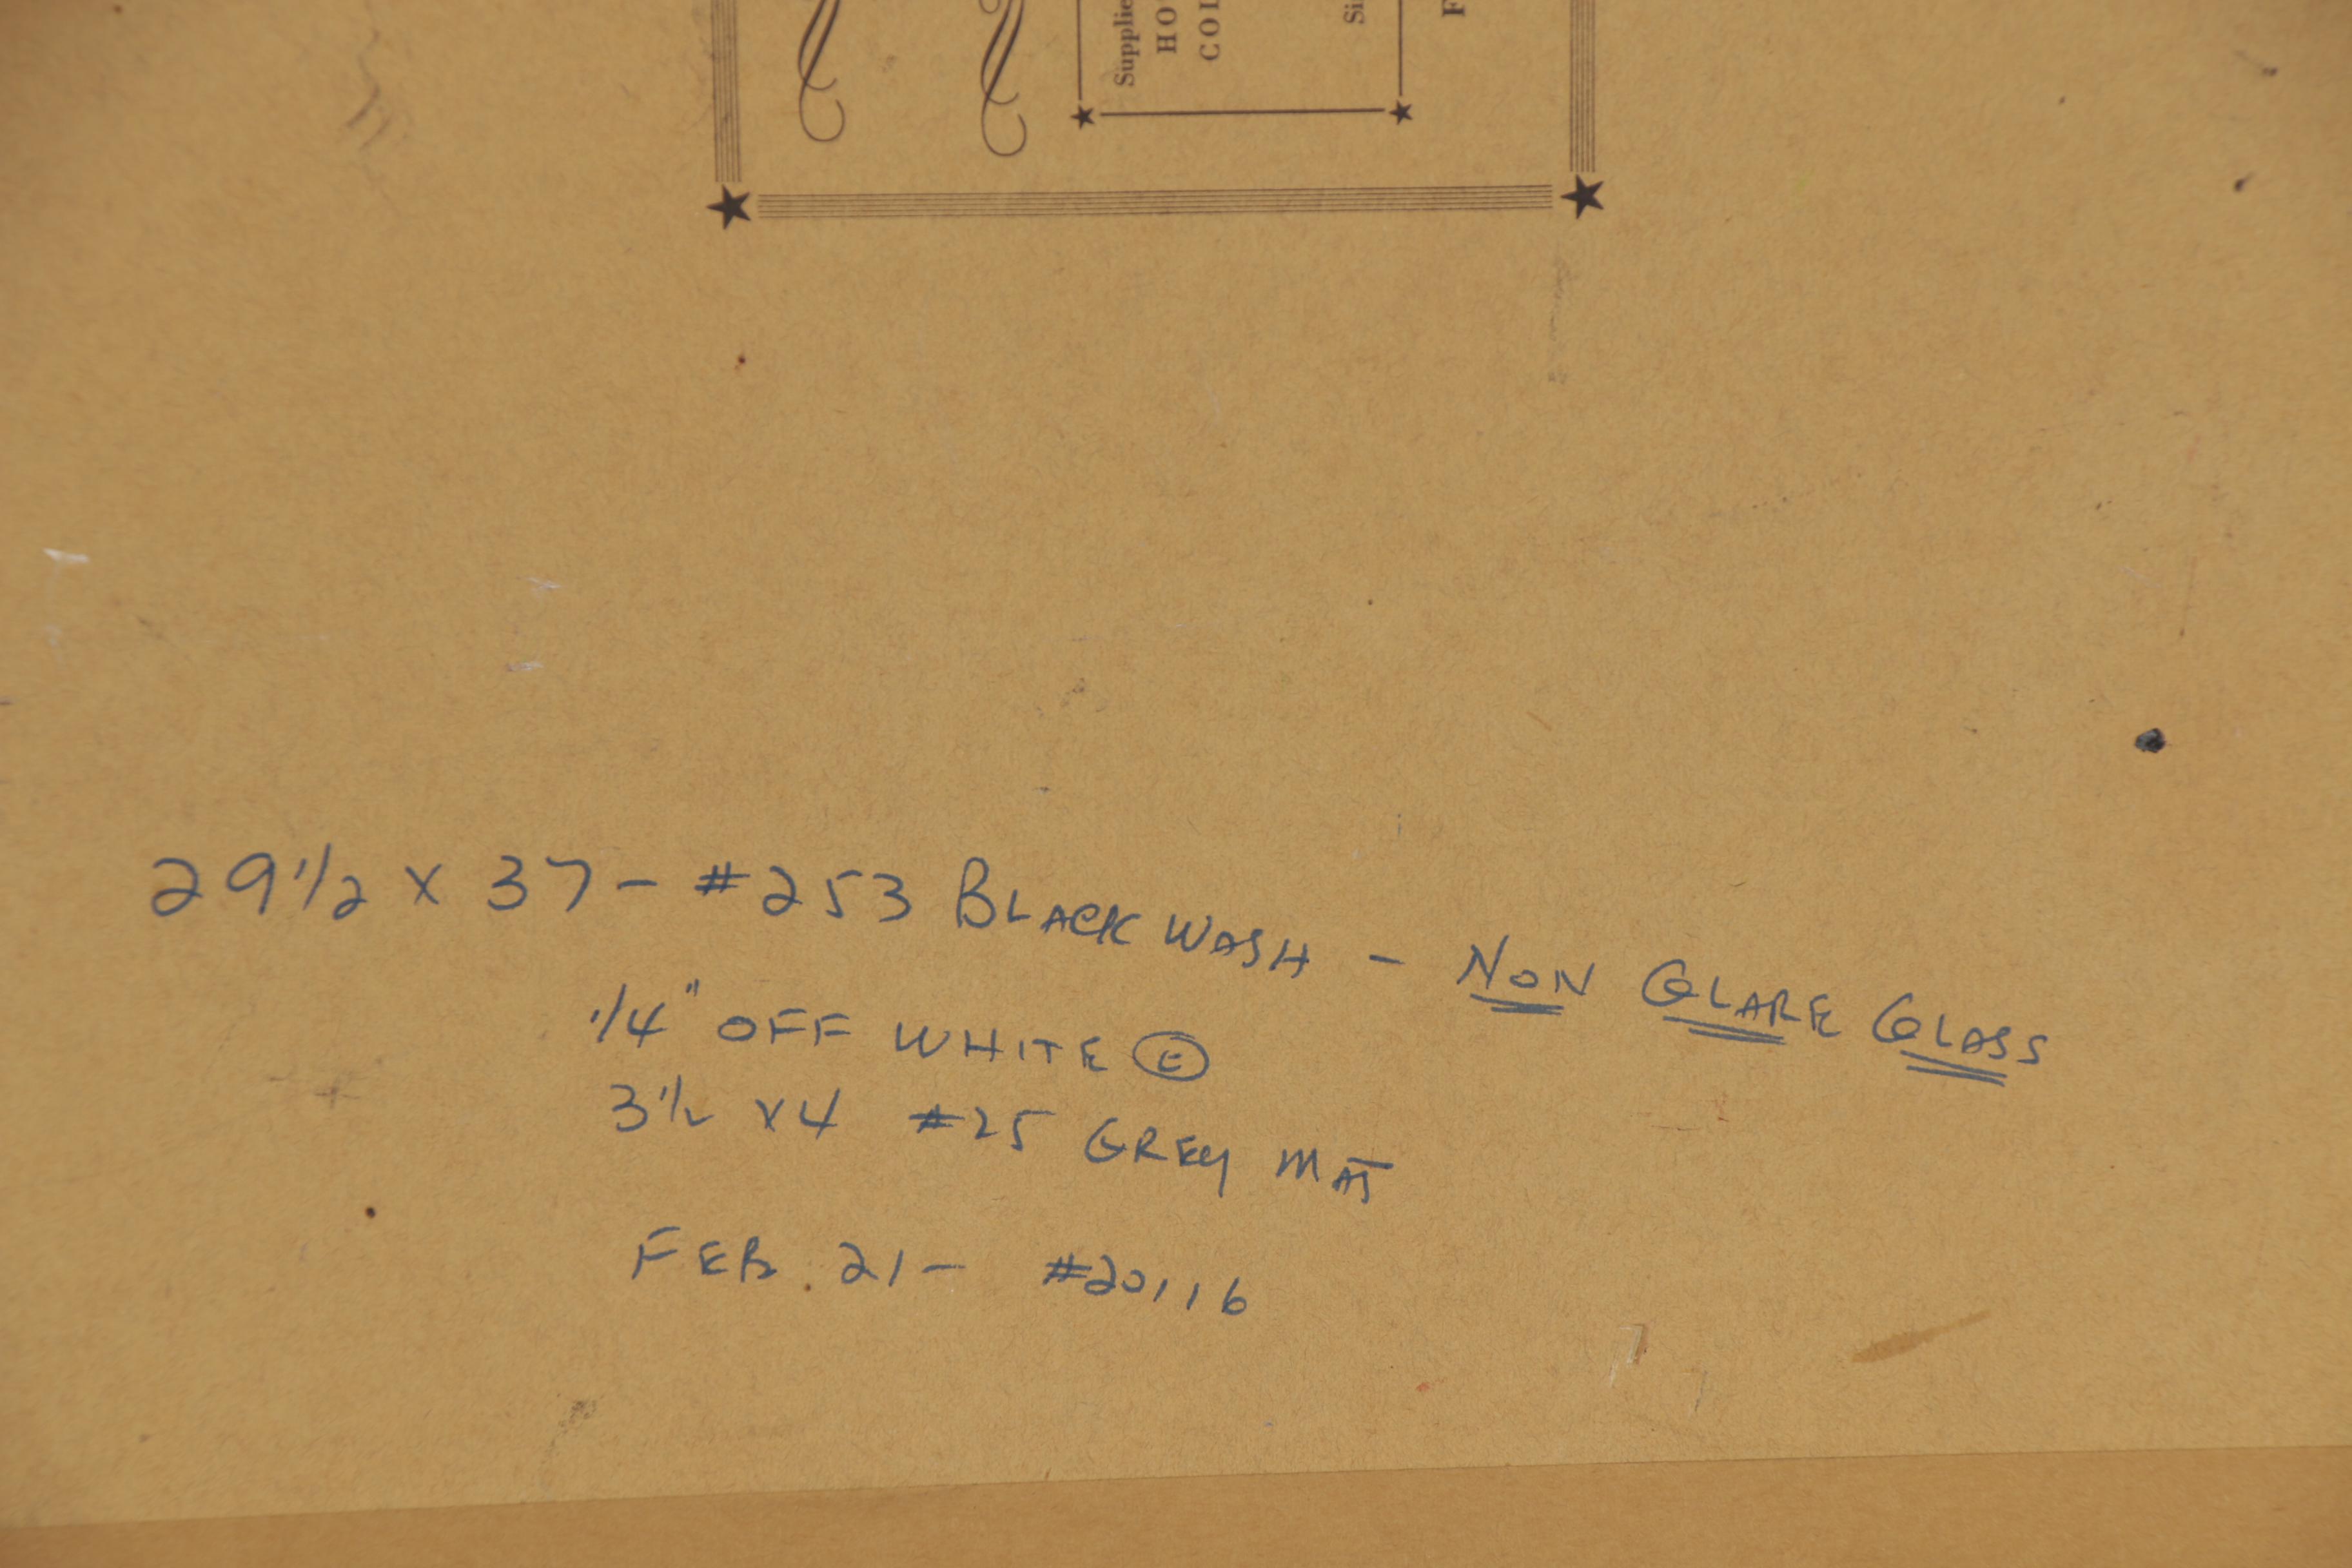 Supplie
HO
COL
Si
F
29 1/2 x 37 - #253 BLACK WASH - NON GLARE GLASS
1/4" OFF WHITE E
3 1/2 x 4 #25 GREY MAT
FEB. 21 - #20116